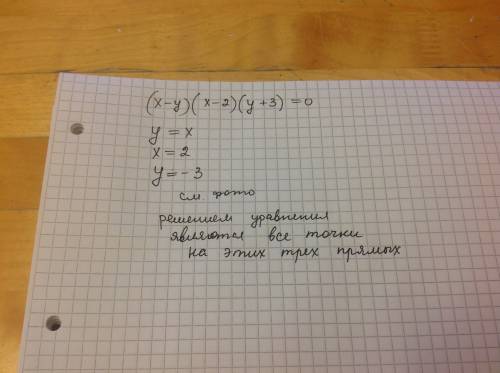 (x-y)(x-2)(y+3)=0
y=x
x=2
y=-3
см. фото
решением уравнения
являются все точки
на этих трех прямых